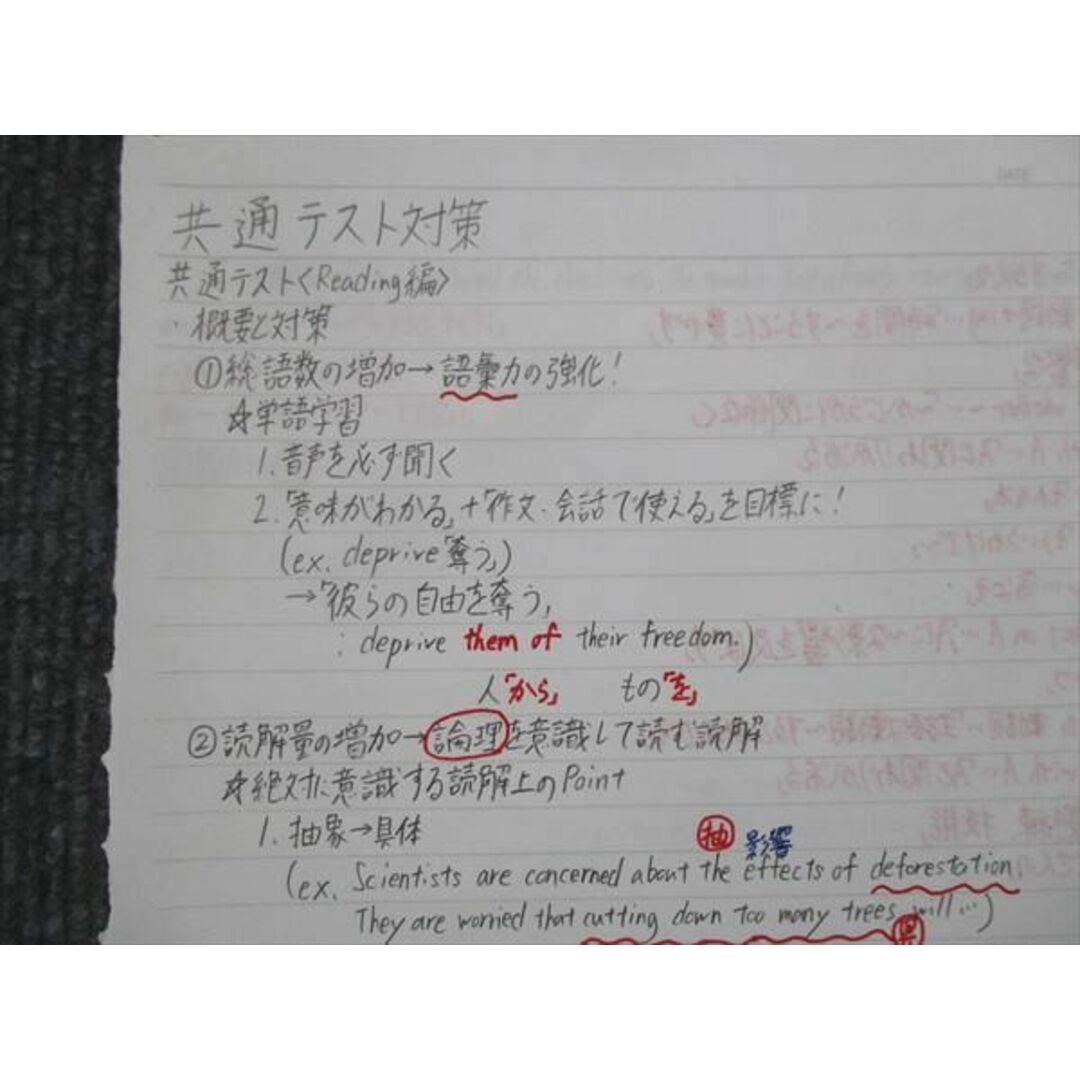 共通テスト対策
共通テスト〈Reading編〉
・概要と対策
①総語数の増加→語彙力の強化!
☆単語学習
1. 音声を必ず聞く
2.「意味がわかる」+「作文・会話で使える」を目標に!
(ex. deprive「奪う」)
→「彼らの自由を奪う」
: deprive them of their freedom.)
人「から」 もの「を」
②読解量の増加→論理を意識して読む読解
☆絶対に意識する読解上のPoint
1. 抽象→具体
抽 影響
(ex. Scientists are concerned about the effects of deforestation.
They are worried that cutting down too many trees will…)
具